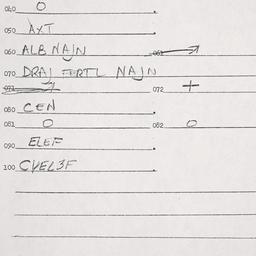 040 O
050 AXT
060 ALB NAJN 061 →
070 DRAJ FERTL NAJN
071 → 072 +
080 CEN
081 O 082 O
090 ELEF
100 CVEL3F